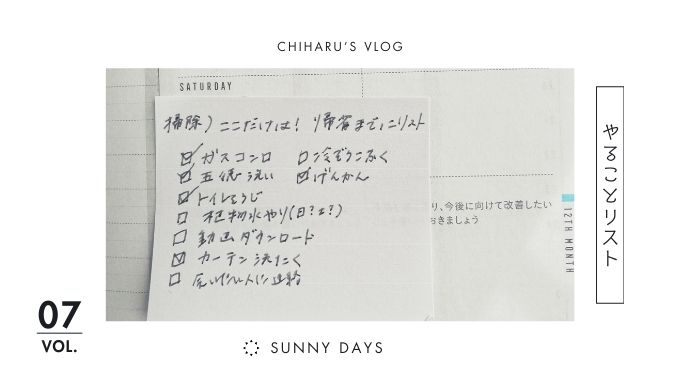 CHIHARU'S VLOG
SATURDAY
掃除) ここだけは! 帰省までにリスト
ガスコンロ
冷ぞうこふく
五徳洗い
げんかん
トイレそうじ
植物水やり(日?土?)
動画ダウンロード
カーテン洗たく
り、今後に向けて改善したい
おきましょう
12TH MONTH
やることリスト
07
VOL.
SUNNY DAYS